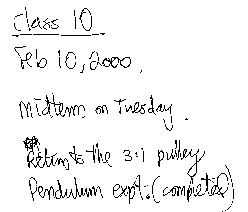 Class 10
Feb 10, 2000.
Midterm on Tuesday.
Return to the 3:1 pulley
Pendulum expt. (completed)